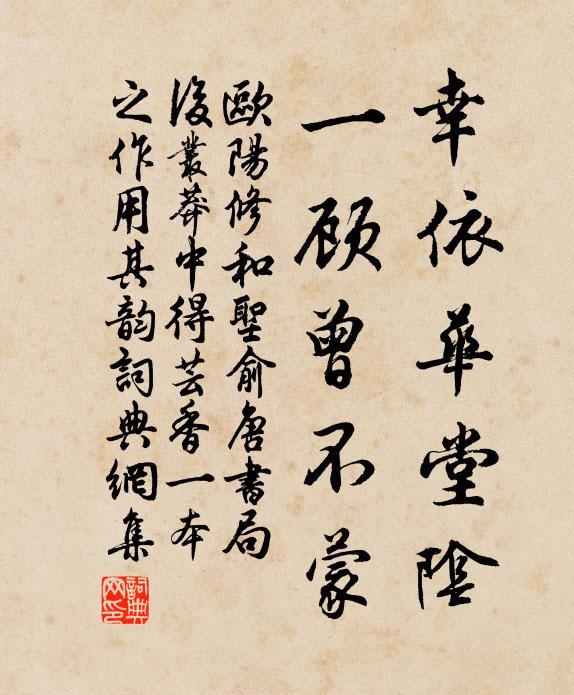 幸依華堂陰
一顧曾不蒙
歐陽修和聖俞唐書局
後叢莽中得芸香一本
之作用其韵詞典網集
詞典网印